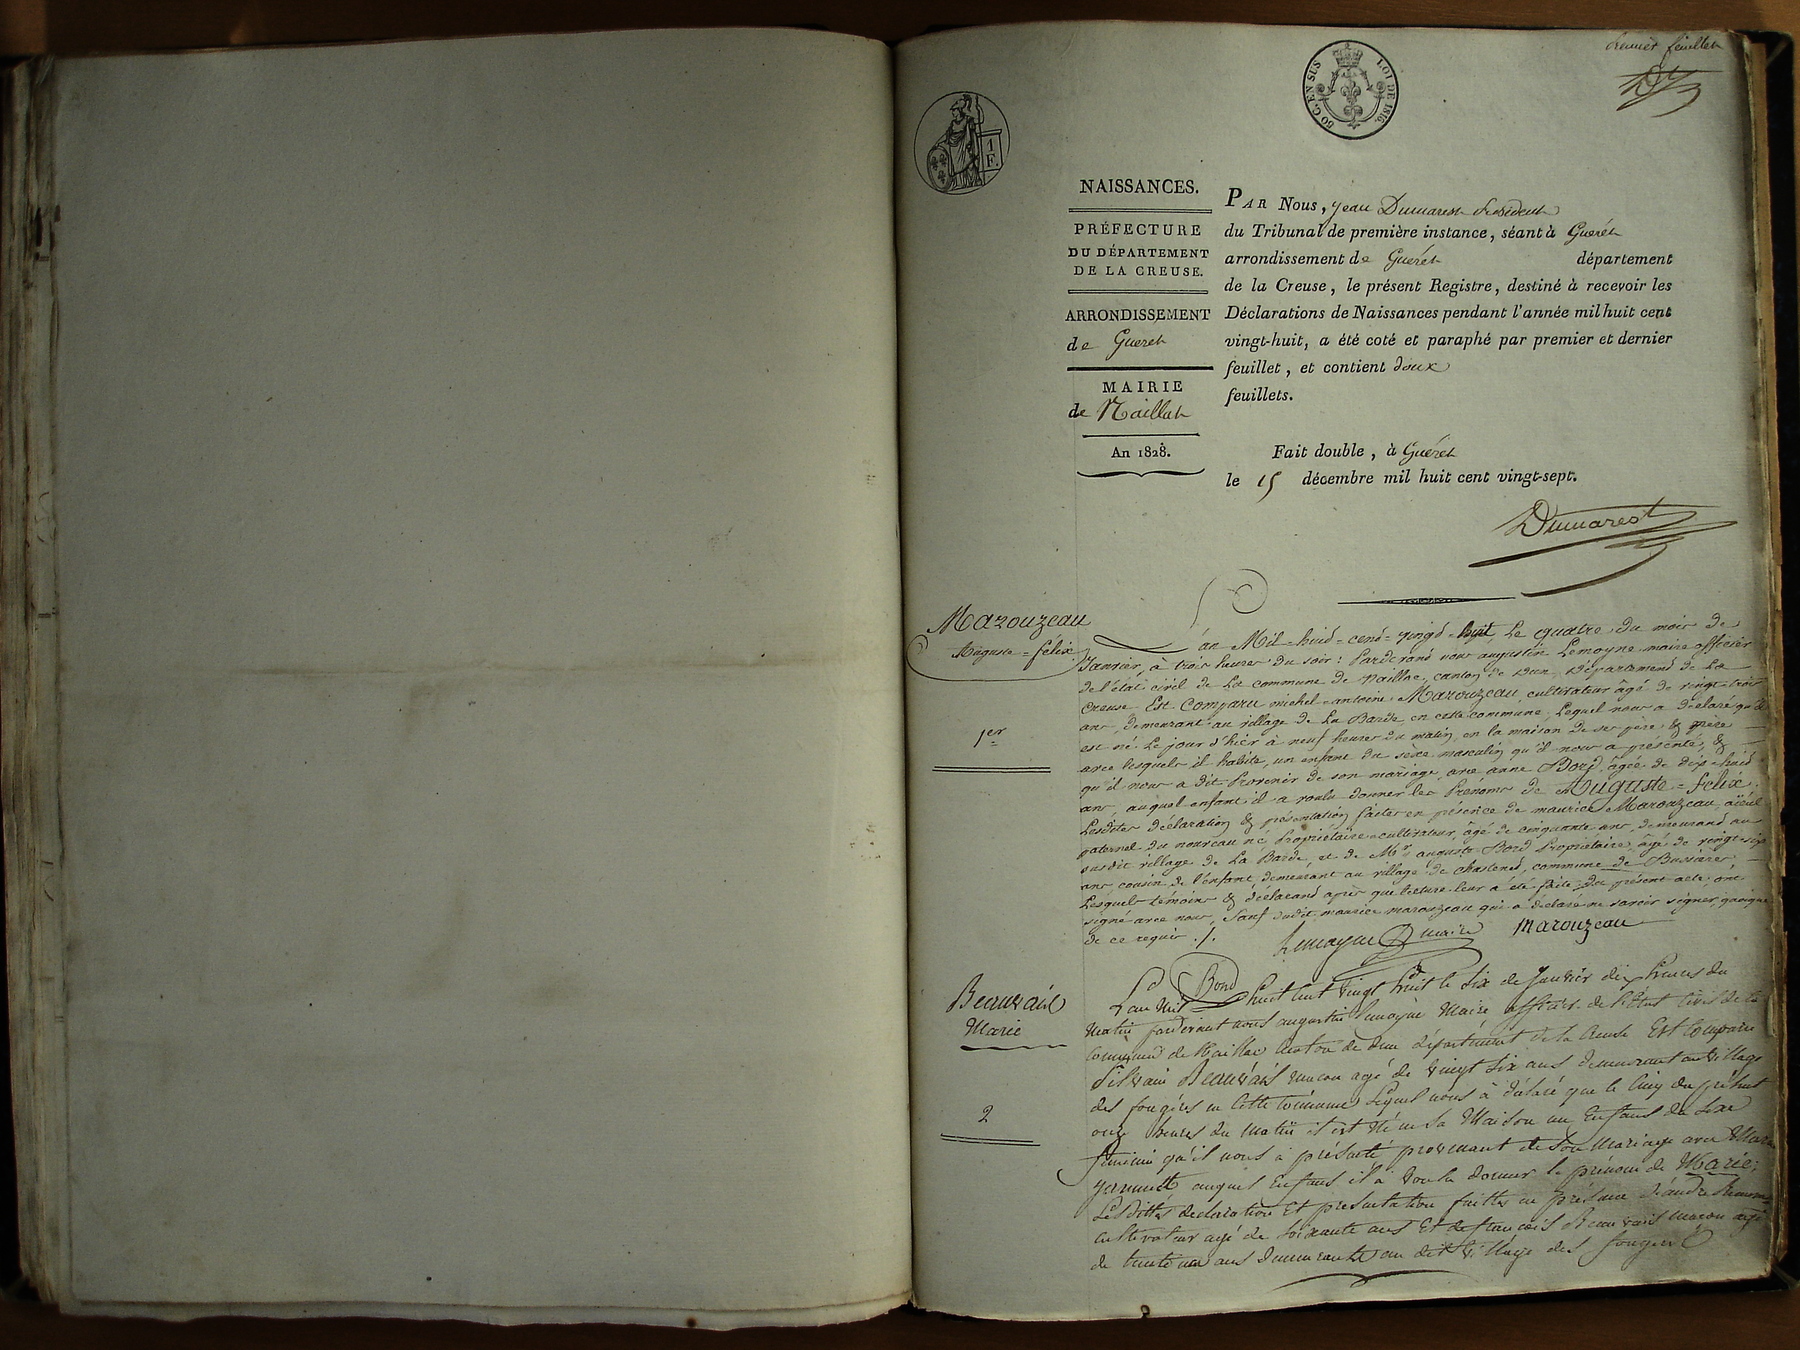 premier feuillet
50 C. EN SUS
LOI DE 1816.
1
F.
NAISSANCES.
PRÉFECTURE
DU DÉPARTEMENT
DE LA CREUSE.
ARRONDISSEMENT
de Gueret
MAIRIE
de Naillat
An 1828.
PAR Nous, Jean Dumarest président
du Tribunal de première instance, séant à Guéret
arrondissement de Guéret département
de la Creuse, le présent Registre, destiné à recevoir les
Déclarations de Naissances pendant l'année mil huit cent
vingt-huit, a été coté et paraphé par premier et dernier
feuillet, et contient doux
feuillets.
Fait double, à Guéret
le 15 décembre mil huit cent vingt-sept.
Dumarest
Marouzeau
Auguste=félix
1er
an Mil=huid=cend=vingd=huit, Le quatre du mois de
Janvier, à trois heures du soir: Pardevand nous augustin Lemoyne maire officier
de l'état civil de La commune de naillac, canton de Dun, Département de La
Creuse. Est Comparu michel=antoine Marouzeau cultivateur âgé de vingt=trois
ans, demeurant au village de La Barde en cette commune; Lequel nous a déclaré qu'il
est né Le jour d'hier à neuf heures du matin, en la maison de ses père & mère
avec lesquels il habite, un enfant du sèxe masculin qu'il nous a présenté, &
qu'il nous a dit Provenir de son mariage avec anne Bord âgée de dix=huid
ans, auquel enfant il a voulu donner les Prenoms de Auguste=felix;
Lesdites déclaration & présentation faites en présence de maurice Marouzeau, aïeul
paternel du nouveau né Propriétaire=cultivateur, âgé de cinquante ans, demeurand au
susdit village de La Barde, et de Mr auguste Bord Propriétaire, âgé de vingt=six
ans, cousin de l'enfant, demeurant au village de chastend, commune de Bussière;
Lesquels témoins & déclarand après que lecture leur a été faite du présent acte, ont
signé avec nous, Sauf ledit maurice marouzeau qui a déclaré ne savoir signer, quoique
de ce requis ./.
Lemoyne maire Marouzeau
Bord
Beauvais
Marie
2
L'an Mil huit cent vingt huit le six de Janvier dix heures du
matin pardevant nous augustin Lemoyne Maire officier de l'état civil de la
commune de Naillac canton de dun département de la creuse Est comparu
Silvain Beauvais macon agé de vingt six ans demeurant au village
des fougères en cette commune Lequel nous à déclaré que le cinq du présent
onze heures du matin il est né en sa Maison un Enfant du sexe
féminin qu'il nous à présenté provenant de son mariage avec Marie
auquel Enfant il à voulu donner le prénom de Marie;
Lesdittes déclaration Et présentation faittes en présence d'andré
cultivateur agé de soixante ans Et de françois Beauvais macon agé
de trente ans demeurants au dit village des fougères